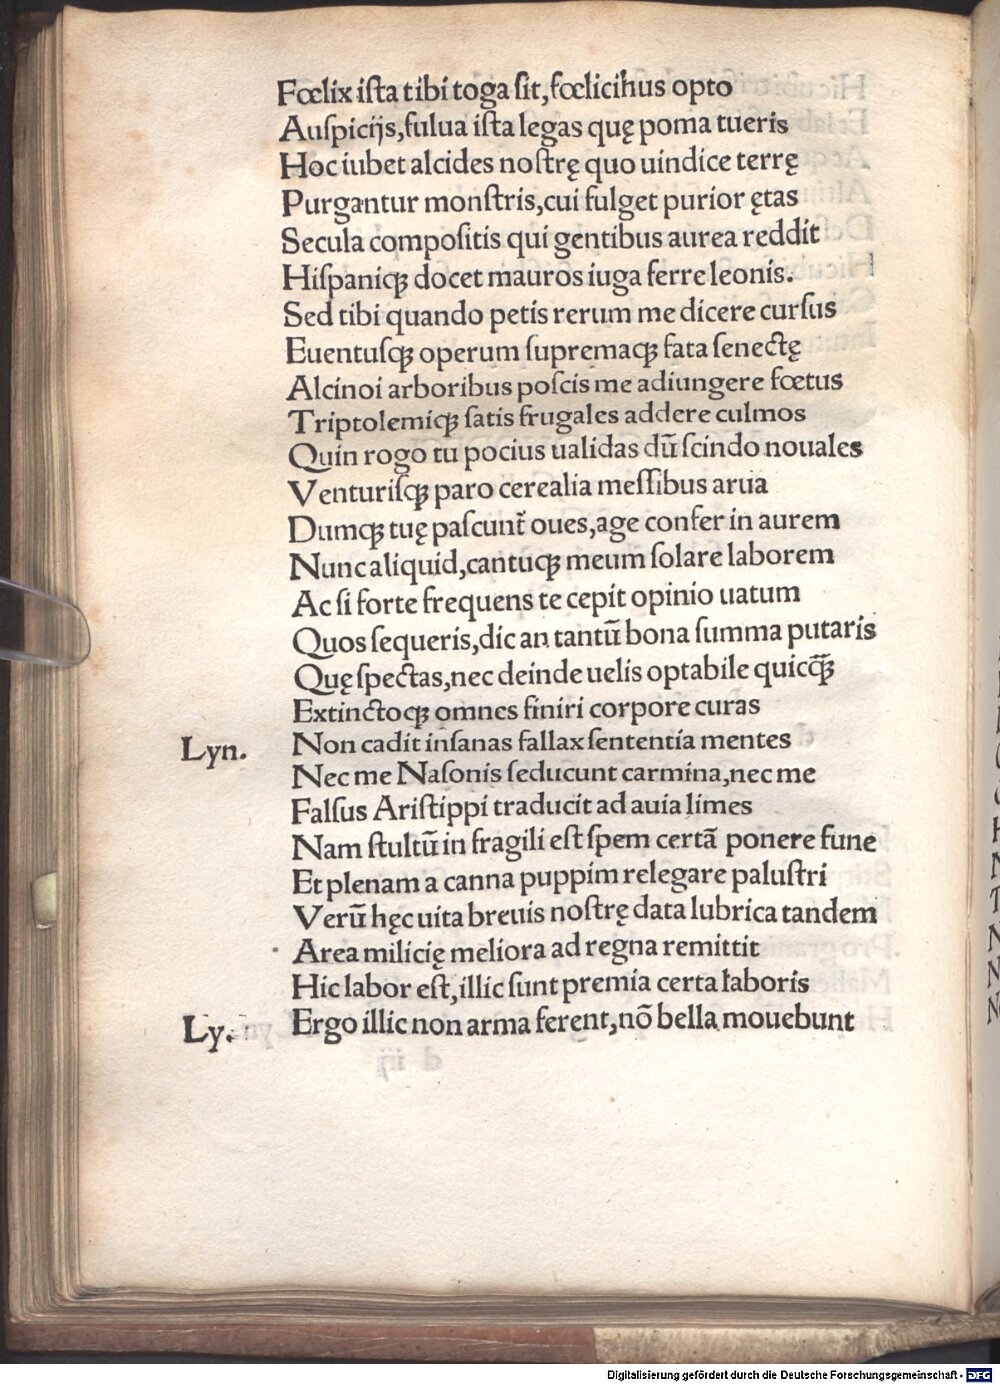 Fœlix iſta tibi toga ſit, fœlicihus opto
Auſpicijs, fulua iſta legas quę poma tueris
Hoc iubet alcides noſtrę quo uindice terrę
Purgantur monſtris, cui fulget purior ętas
Secula compoſitis qui gentibus aurea reddit
Hiſpaniqꝫ docet mauros iuga ferre leonis.
Sed tibi quando petis rerum me dicere curſus
Euentuſqꝫ operum ſupremaqꝫ fata ſenectę
Alcinoi arboribus poſcis me adiungere fœtus
Triptolemiqꝫ ſatis frugales addere culmos
Quin rogo tu pocius ualidas dū ſcindo nouales
Venturiſqꝫ paro cerealia meſſibus arua
Dumqꝫ tuę paſcunt̄ oues, age confer in aurem
Nunc aliquid, cantuqꝫ meum ſolare laborem
Ac ſi forte frequens te cepit opinio uatum
Quos ſequeris, dic an tantū bona ſumma putaris
Quę ſpectas, nec deinde uelis optabile quicq̄ꝫ
Extinctoqꝫ omnes finiri corpore curas
Lyn. Non cadit inſanas fallax ſententia mentes
Nec me Naſonis ſeducunt carmina, nec me
Falſus Ariſtippi traducit ad auia limes
Nam ſtultū in fragili eſt ſpem certā ponere fune
Et plenam a canna puppim relegare paluſtri
Verū hęc uita breuis noſtrę data lubrica tandem
Area milicię meliora ad regna remittit
Hic labor eſt, illic ſunt premia certa laboris
Ly. Ergo illic non arma ferent, nō bella mouebunt
Digitalisierung gefördert durch die Deutsche Forschungsgemeinschaft - DFG